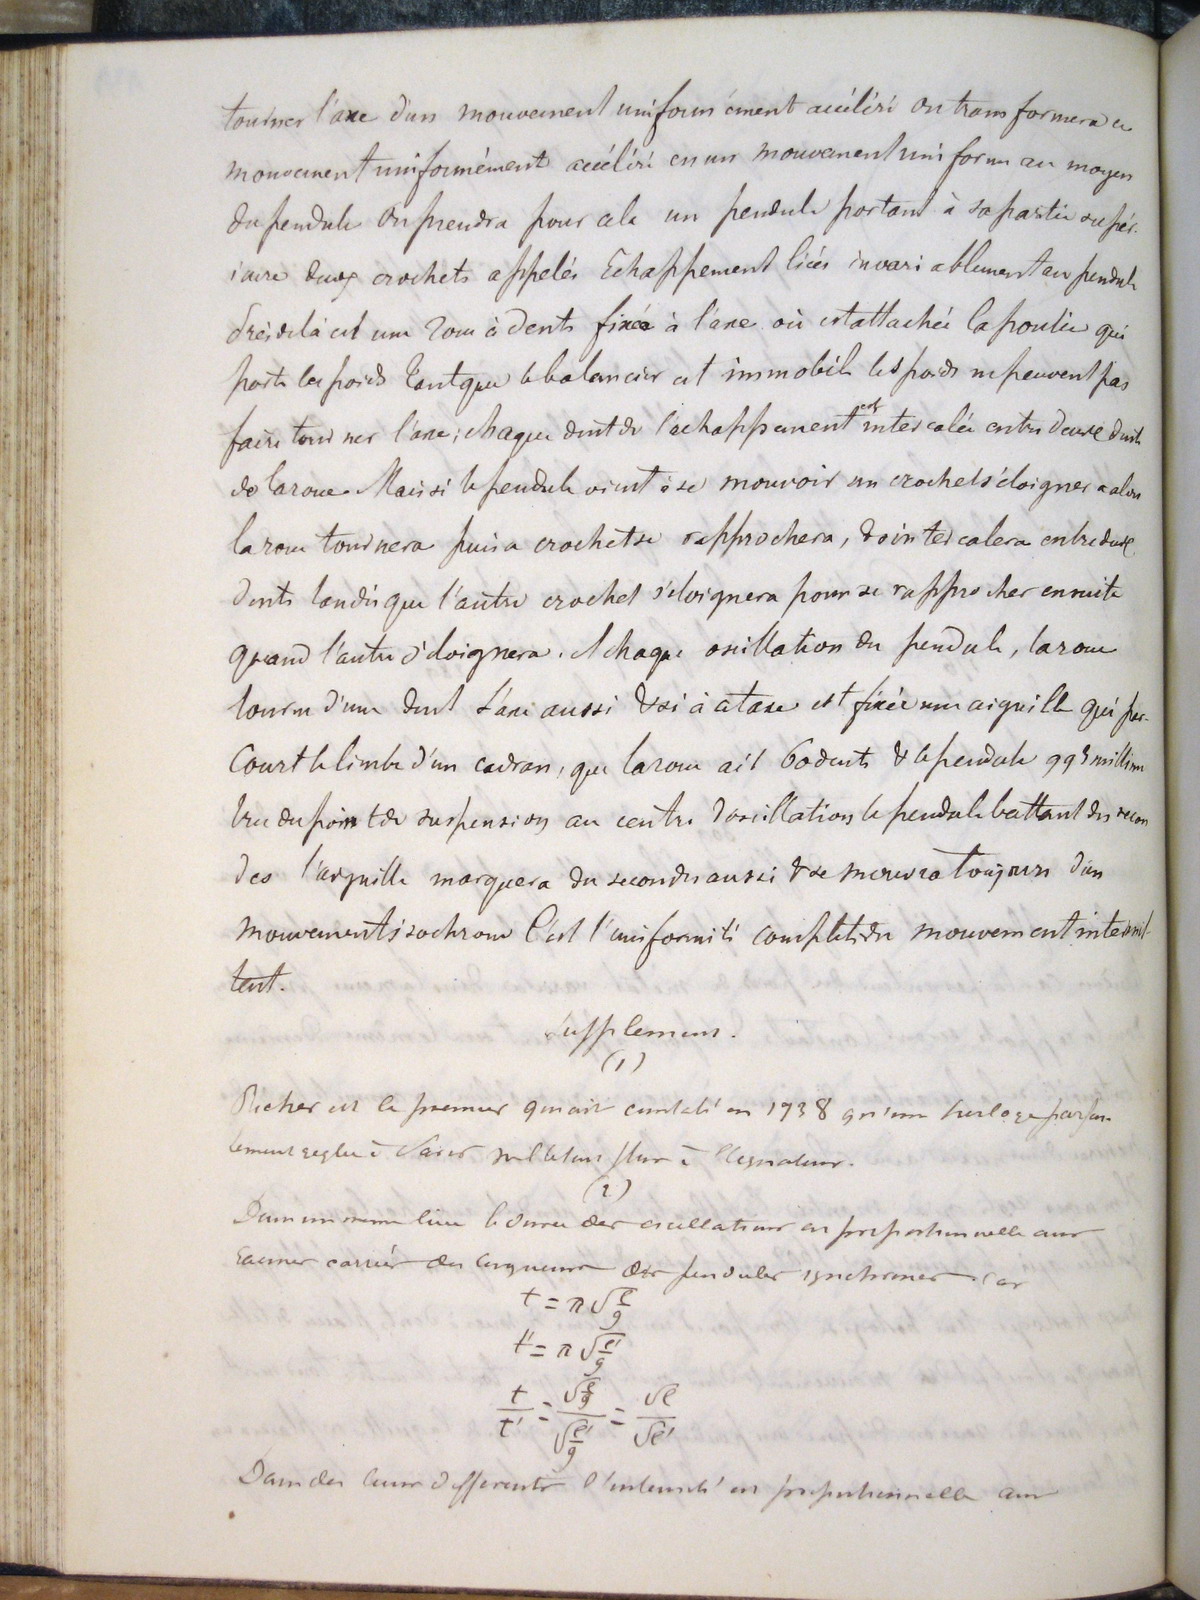 tourner l'axe d'un mouvement uniformément accéléré on transformera ce
mouvement uniformément accéléré en un mouvement uniforme au moyen
du pendule On prendra pour cela un pendule portant à sa partie supér-
ieure deux crochets appelés Echappement liés invariablement au pendule
Près de là est une roue à dents fixée à l'axe où est attachée la poulie qui
porte les poids Tant que le balancier est immobile les poids ne peuvent pas
faire tourner l'axe; chaque dent de l'échappement est intercalée entre deux dents
de la roue. Mais si le pendule vient à se mouvoir un crochet s'éloignera alors
la roue tournera puis ce crochet se rapprochera, & s'intercalera entre deux
dents tandis que l'autre crochet s'éloignera pour se rapprocher ensuite
quand l'autre s'éloignera. A chaque oscillation du pendule, la roue
tourne d'une dent L'axe aussi & si à cet axe est fixée une aiguille qui par-
court le limbe d'un cadran, que la roue ait 60 dents & le pendule 993 millim
tres du point de suspension au centre d'oscillation le pendule battant des secon
des l'aiguille marquera des secondes aussi & se mouvra toujours d'un
mouvement isochrone C'est l'uniformité complète du mouvement intermit-
tent.
Supplement.
(1)
Richer est le premier qui ait constaté en 1738 qu'une horloge parfai-
tement reglée à Paris à l'équateur.
(2)
Dans un meme lieu la durée des oscillations est proportionnelle aux
racines carrées des longueurs des pendules synchrones car
t = π √l/g
t' = π √l'/g
t/t' = √l/g / √l'/g = √l / √l'
Dans des lieux differents l'intensité est proportionnelle aux